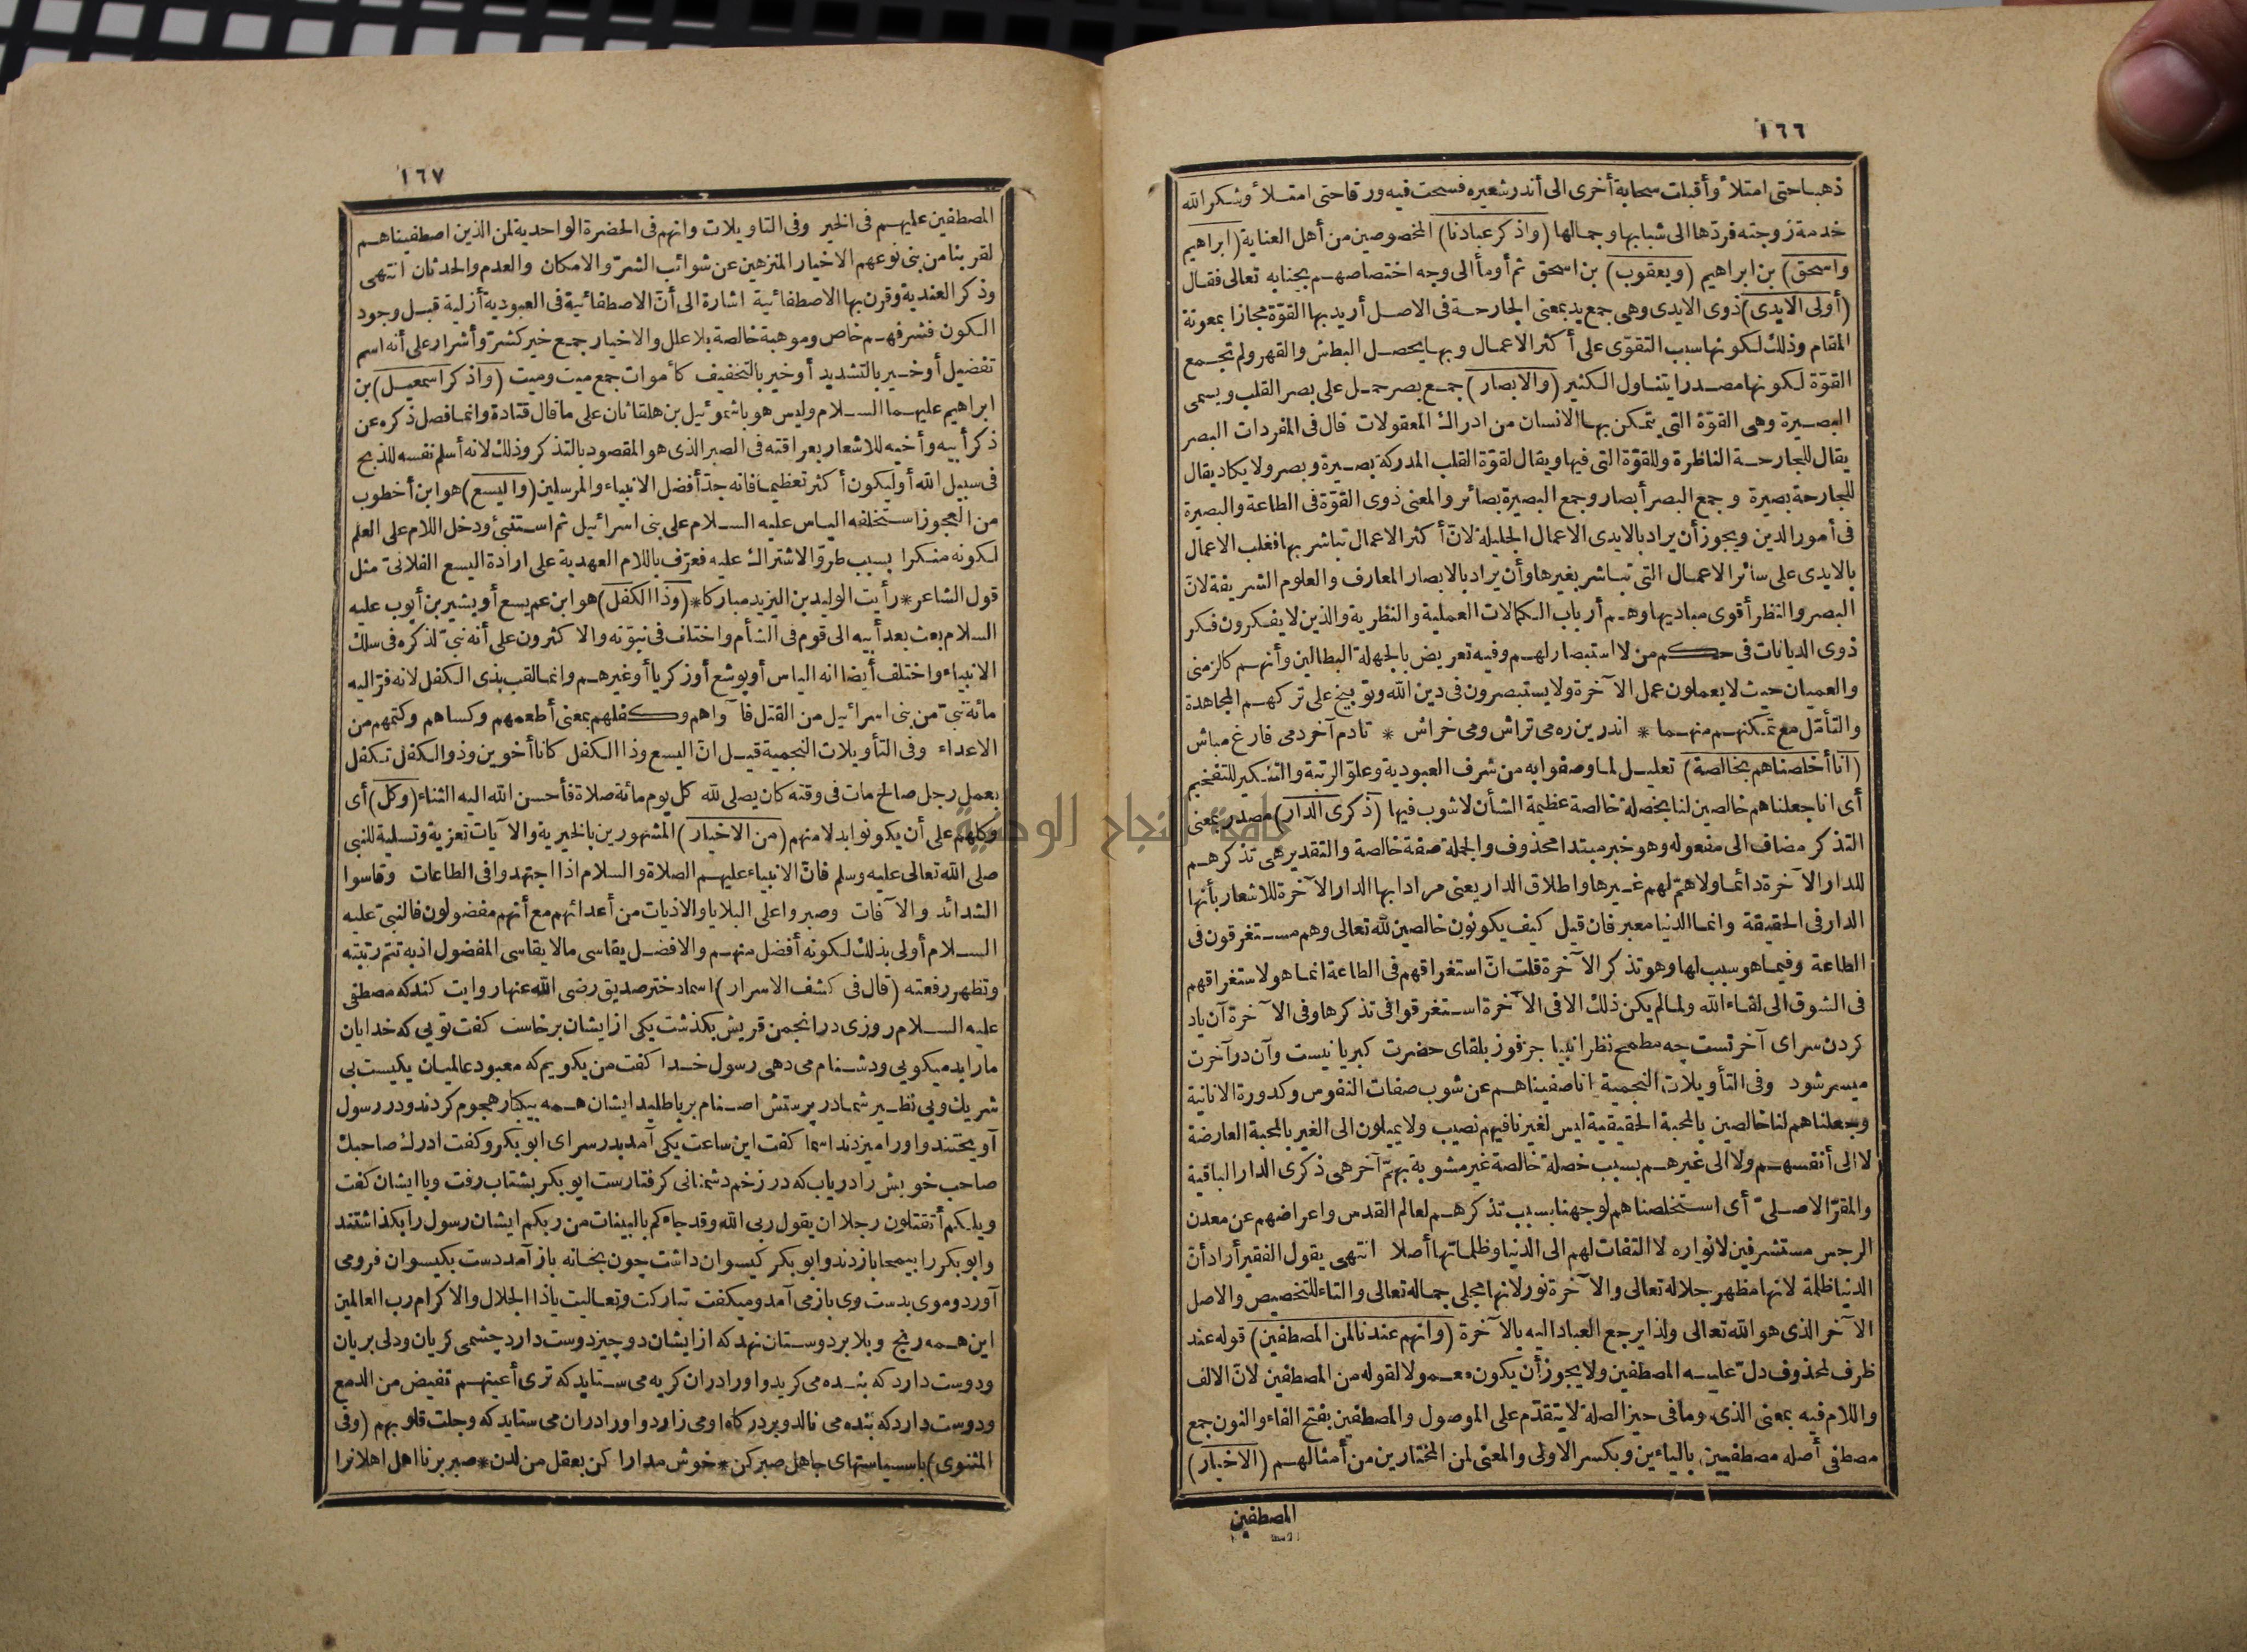 ١٦٦
ذهبا حتى امتلأ وأقبلت سحابة أخرى الى أندر شعيره فسحت فيه ورقا حتى امتلأ وشكر الله
خدمة زوجته فردّها الى شبابها وجمالها (واذكر عبادنا) المخصوصين من أهل العناية (ابراهيم
واسحق) بن ابراهيم (ويعقوب) بن اسحق ثم أومأ الى وجه اختصاصهم بجنابه تعالى فقال
(أولى الايدى) ذوى الايدى وهى جمع يد بمعنى الجارحة فى الاصل أريد بها القوّة مجازا بمعونة
المقام وذلك لكونها سبب التقوّى على أكثر الاعمال وبها يحصل البطش والقهر ولم تجمع
القوّة لكونها مصدرا يتناول الكثير (والابصار) جمع بصر حمل على بصر القلب ويسمى
البصيرة وهى القوّة التى يتمكن بها الانسان من ادراك المعقولات قال فى المفردات البصر
يقال للجارحة الناظرة وللقوّة التى فيها ويقال لقوّة القلب المدركة بصيرة وبصر ولا يكاد يقال
للجارحة بصيرة وجمع البصر أبصار وجمع البصيرة بصائر والمعنى ذوى القوّة فى الطاعة والبصيرة
فى أمور الدين ويجوز أن يراد بالايدى الاعمال الجليلة لانّ أكثر الاعمال تباشر بها فغلب الاعمال
بالايدى على سائر الاعمال التى تباشر بغيرها وأن يراد بالابصار المعارف والعلوم الشريفة لانّ
البصر والنظر أقوى مباديها وهم أرباب الكمالات العملية والنظرية والذين لا يفكرون فكر
ذوى الديانات فى حكم من لا استبصار لهم وفيه تعريض بالجهلة البطالين وأنهم كالزمنى
والعميان حيث لا يعملون عمل الآخرة ولا يستبصرون فى دين الله وتوبيخ على تركهم المجاهدة
والتأمّل مع تمكنهم منهما * اندرين ره مى تراش ومى خراش * تادم آخر دمى فارغ مباش
(انا أخلصناهم بخالصة) تعليل لما وصفوا به من شرف العبودية وعلوّ الرتبة والتنكير للتفخيم
أى انا جعلناهم خالصين لنا بخصلة خالصة عظيمة الشأن لا شوب فيها (ذكرى الدار) مصدر بمعنى
التذكر مضاف الى مفعوله وهو خبر مبتدا محذوف والجملة صفة خالصة والتقدير هى تذكرهم
للدار الآخرة دائما ولا همّ لهم غيرها واطلاق الدار يعنى مرادا بها الدار الآخرة للاشعار بأنها
الدار فى الحقيقة وانما الدنيا معبر فان قيل كيف يكونون خالصين لله تعالى وهم مستغرقون فى
الطاعة وفيما هو سبب لها وهو تذكر الآخرة قلت انّ استغراقهم فى الطاعة انما هو لاستغراقهم
فى الشوق الى لقاء الله ولما لم يكن ذلك الا فى الآخرة استغرقوا فى تذكرها وفى الآخرة آن ياد
كردن سراى آخرتست چه مطمح نظر انبيا جز فوز بلقاى حضرت كبريا نيست وآن در آخرت
ميسر شود وفى التأويلات النجمية انا صفيناهم عن شوب صفات النفوس وكدورة الانانية
وجعلناهم لنا خالصين بالمحبة الحقيقية ليس لغيرنا فيهم نصيب ولا يميلون الى الغير بالمحبة العارضة
لا الى أنفسهم ولا الى غيرهم بسبب خصلة خالصة غير مشوبة بهمّ آخر هى ذكرى الدار الباقية
والمقرّ الاصلىّ أى استخلصناهم لوجهنا بسبب تذكرهم لعالم القدس واعراضهم عن معدن
الرجس مستشرفين لانواره لا التفات لهم الى الدنيا وظلماتها أصلا انتهى يقول الفقير أراد أنّ
الدنيا ظلمة لانها مظهر جلاله تعالى والآخرة نور لانها مجلى جماله تعالى والتاء للتخصيص والاصل
الآخر الذى هو الله تعالى ولذا يرجع العباد اليه بالآخرة (وانهم عندنا لمن المصطفين) قوله عند
ظرف لمحذوف دلّ عليه المصطفين ولا يجوز أن يكون معمولا لقوله من المصطفين لانّ الالف
واللام فيه بمعنى الذى وما فى حيز الصلة لا يتقدّم على الموصول والمصطفين بفتح الفاء والنون جمع
مصطفى أصله مصطفيين بالياءين وبكسر الاولى والمعنى لمن المختارين من أمثالهم (الاخيار)
المصطفين
١٦٧
المصطفين عليهم فى الخير وفى التاويلات وانهم فى الحضرة الواحدية لمن الذين اصطفيناهم
لقربنا من بنى نوعهم الاخيار المتنزهين عن شوائب الشرّ والامكان والعدم والحدثان انتهى
وذكر العندية وقرن بها الاصطفائية اشارة الى أنّ الاصطفائية فى العبودية أزلية قبل وجود
الكون فشرفهم خاص وموهبة خالصة بلا علل والاخيار جمع خير كشرّ وأشرار على أنه اسم
تفضيل أو خير بالتشديد أو خير بالتخفيف كأموات جمع ميت وميت (واذكر اسمعيل) بن
ابراهيم عليهما السلام وليس هو باشموئيل بن هلقاثان على ما قال قتادة وانما فصل ذكره عن
ذكر أبيه وأخيه للاشعار بعراقته فى الصبر الذى هو المقصود بالتذكر وذلك لانه أسلم نفسه للذبح
فى سبيل الله أو ليكون أكثر تعظيما فانه جدّ أفضل الانبياء والمرسلين (واليسع) هو ابن أخطوب
من العجوز استخلفه الياس عليه السلام على بنى اسرائيل ثم استنبئ ودخل اللام على العلم
لكونه منكرا بسبب طروّ الاشتراك عليه فعرّف باللام العهدية على ارادة اليسع الفلانىّ مثل
قول الشاعر * رأيت الوليد بن اليزيد مباركا * (وذا الكفل) هو ابن عم يسع أو بشير بن أيوب عليه
السلام بعث بعد أبيه الى قوم فى الشأم واختلف فى نبوّته والاكثرون على أنه نبىّ لذكره فى سلك
الانبياء واختلف أيضا انه الياس أو يوشع أو زكريا أو غيرهم وانما لقب بذى الكفل لانه فرّ اليه
مائة نبىّ من بنى اسرائيل من القتل فآواهم وكفلهم بمعنى أطعمهم وكساهم وكتمهم من
الاعداء وفى التأويلات النجمية قيل انّ اليسع وذا الكفل كانا أخوين وذو الكفل تكفل
بعمل رجل صالح مات فى وقته كان يصلى لله كل يوم مائة صلاة فأحسن الله اليه الثناء (وكل) أى
وكلهم على أن يكونوا بدلا منهم (من الاخيار) المشهورين بالخيرية والآيات تعزية وتسلية للنبى
صلى الله تعالى عليه وسلم فانّ الانبياء عليهم الصلاة والسلام اذا اجتهدوا فى الطاعات وقاسوا
الشدائد والآفات وصبروا على البلايا والاذيات من أعدائهم مع أنهم مفضولون فالنبىّ عليه
السلام أولى بذلك لكونه أفضل منهم والافضل يقاسى ما لا يقاسى المفضول اذ به تتم رتبته
وتظهر رفعته (قال فى كشف الاسرار) اسماد ختر صديق رضى الله عنها روايت كند كه مصطفى
عليه السلام روزى در انجمن قريش بكذشت يكى از ايشان برخاست كفت تويى كه خدايان
مارا بد ميكويى ودشنام مى دهى رسول خدا كفت من بكويم كه معبود عالميان يكيست بى
شريك وبى نظير شما در پرستش اصنام بر باطليد ايشان همه بيكبار هجوم كردند ودر رسول
آويختند واورا ميزدند اسما كفت اين ساعت يكى آمد بدر سراى ابو بكر وكفت ادرك صاحبك
صاحب خويش را درياب كه در زخم دشمنانى كرفتارست ابو بكر بشتاب رفت وبا ايشان كفت
ويلكم أتقتلون رجلا ان يقول ربى الله وقد جاءكم بالبينات من ربكم ايشان رسول را بكذاشتند
وابو بكر را بيمحابا زدند وابو بكر كيسوان داشت چون بخانه باز آمد دست بكيسوان فرومى
آورد وموى بدست وى باز مى آمد وميكفت تباركت وتعاليت ياذا الجلال والاكرام رب العالمين
اين همه رنج وبلا بر دوستان نهد كه از ايشان دو چيز دوست دارد چشمى كريان ودلى بريان
ودوست دارد كه بنده مى كريد واورا دران كريه مى ستايد كه ترى أعينهم تفيض من الدمع
ودوست دارد كه بنده مى نالد وبر دركاه او مى زارد واورا دران مى ستايد كه وجلت قلوبهم (وفى
المثنوى) با سياستهاى جاهل صبر كن * خوش مدارا كن بعقل من لدن * صبر بر نا اهل اهلانرا
جامعة النجاح الوطنية